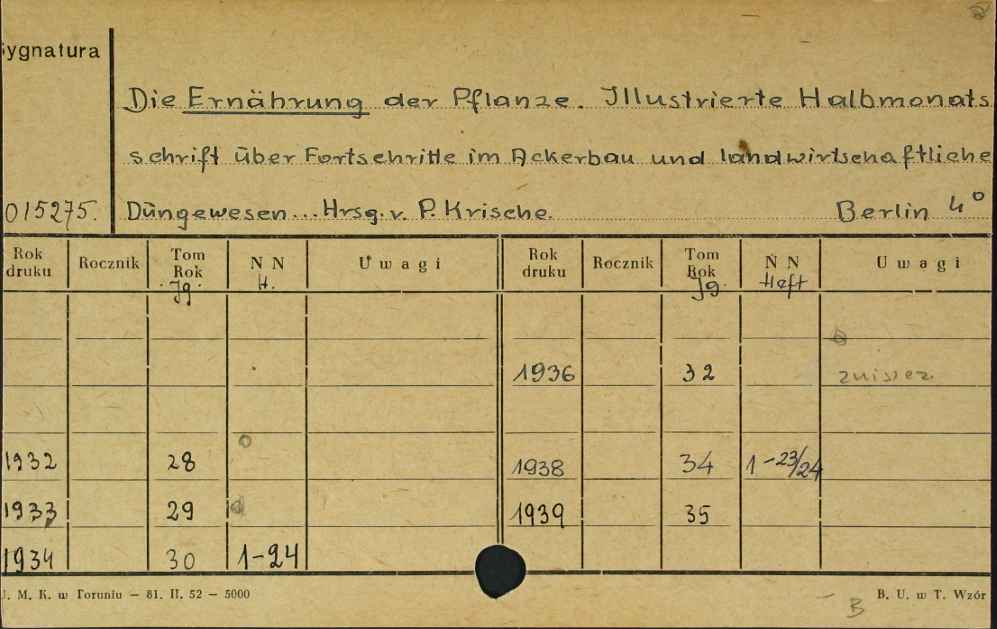 ygnatura
Die Ernährung der Pflanze. Illustrierte Halbmonats
schrift über Fortschritte im Ackerbau und landwirtschaftliche
015275. Düngewesen... Hrsg. v. P. Krische. Berlin 4°
Rok druku Rocznik Tom Rok Jg. N N H. Uwagi Rok druku Rocznik Tom Rok Jg. N N Heft Uwagi
1936 32
1932 28 1938 34 1-23/24
1933 29 1939 35
1934 30 1-24
M. K. w Toruniu — 81. II. 52 — 5000 B. U. w T. Wzór
B